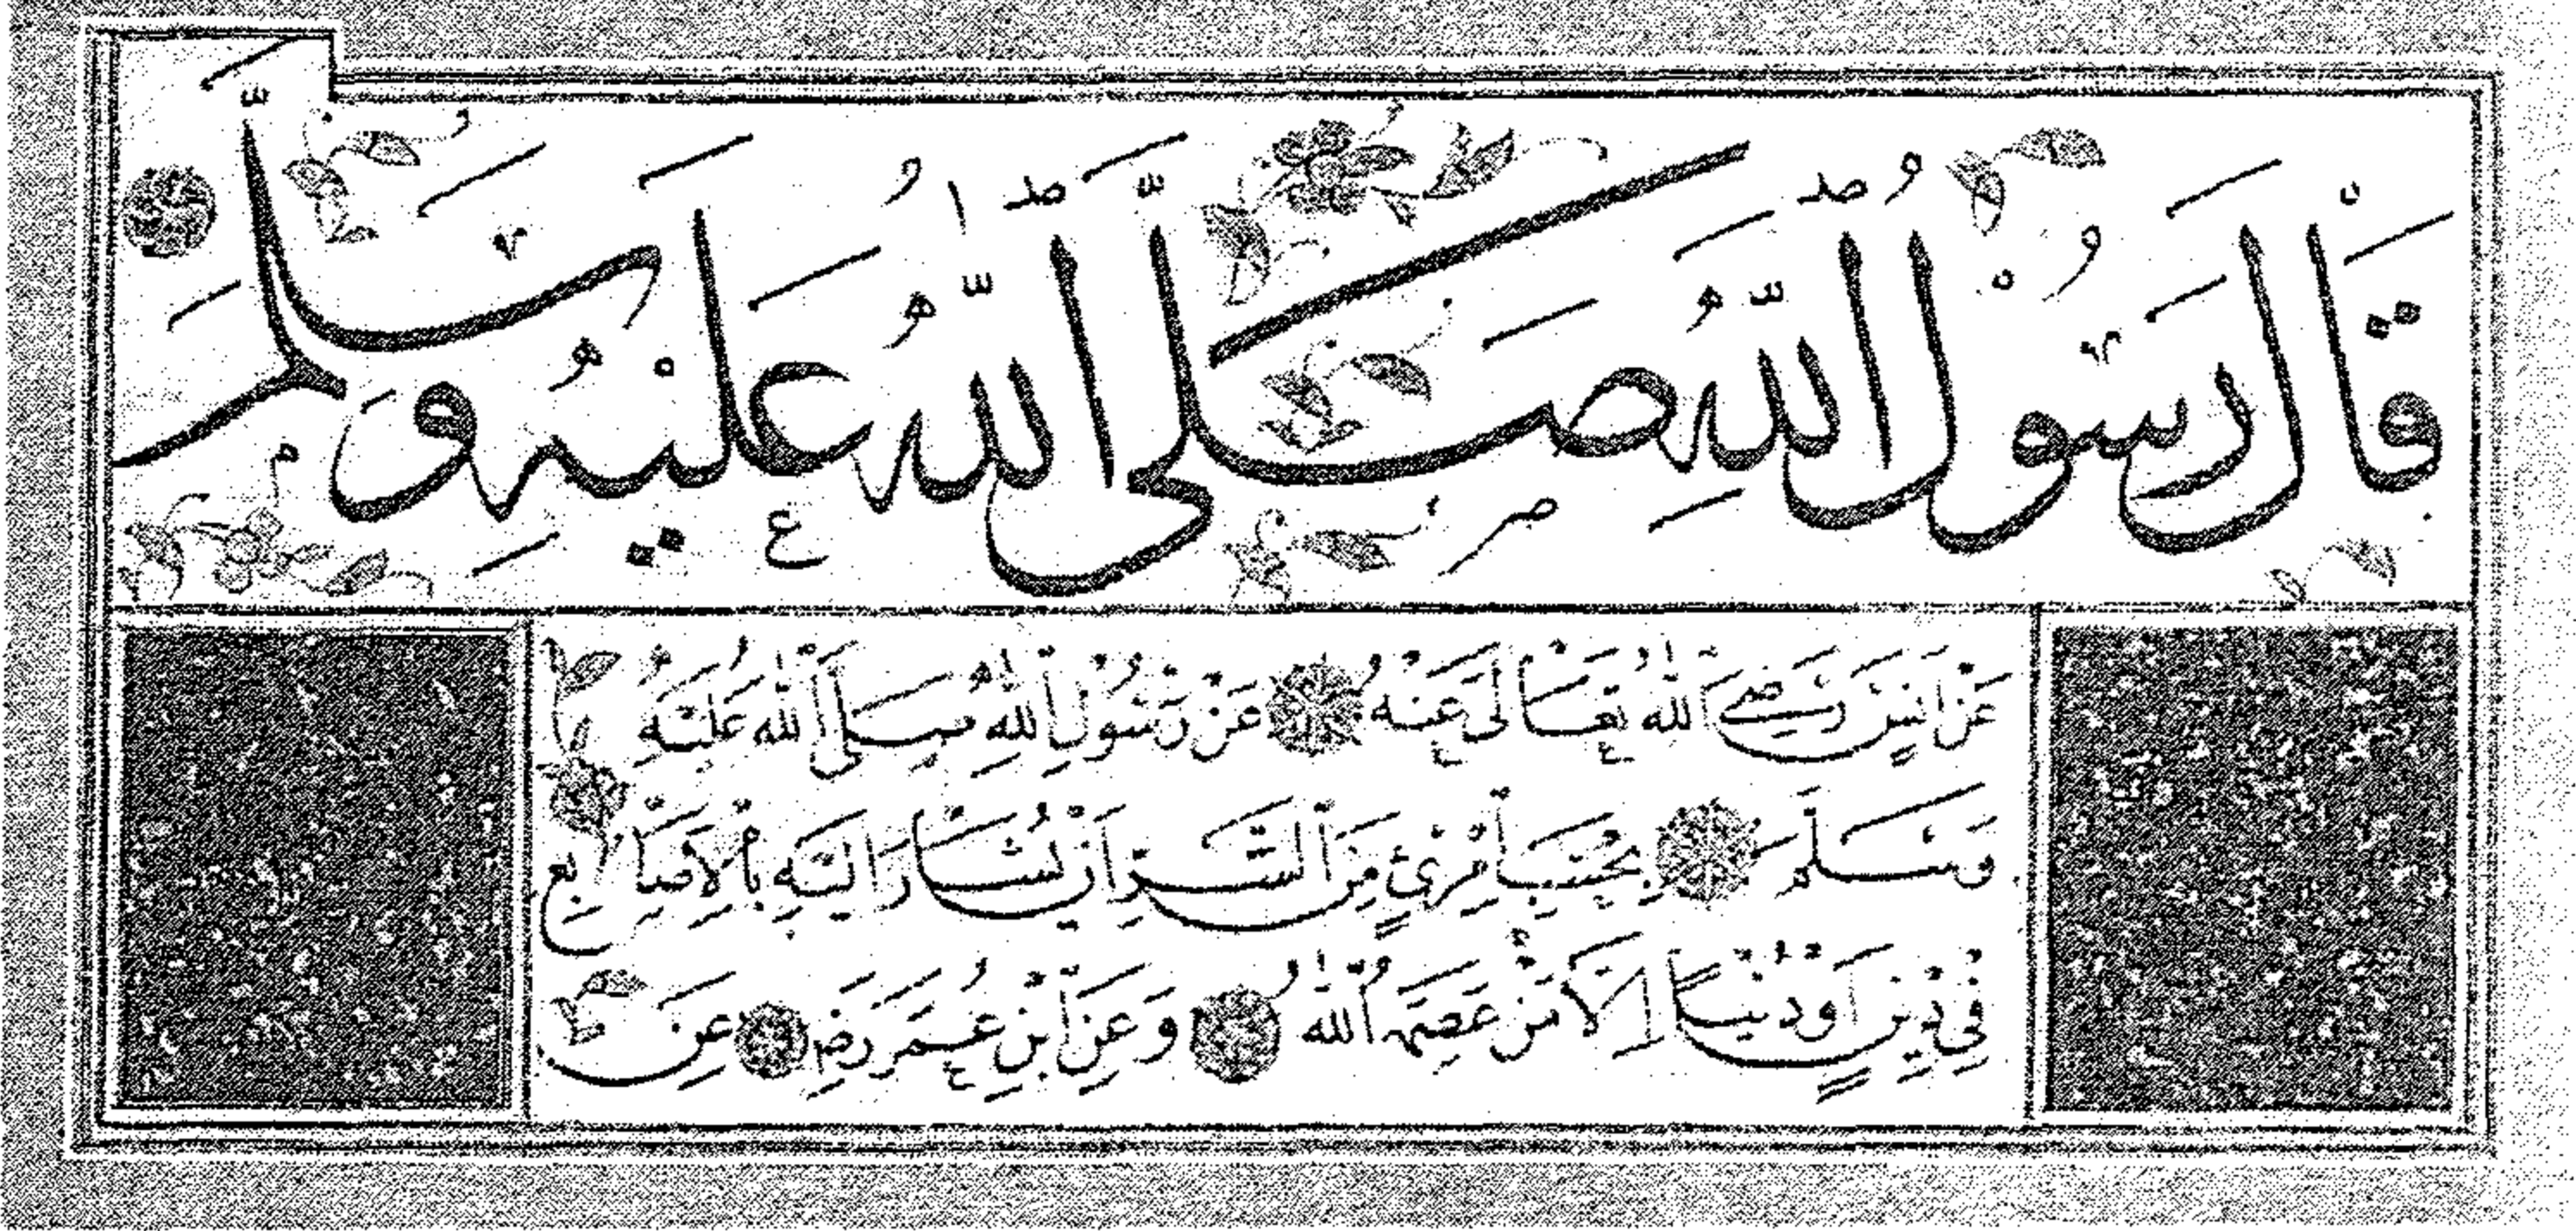 قَالَ رَسُولُ اللّٰهِ صَلَّى اللّٰهُ عَلَيْهِ وَسَلَّمَ
عَنْ اَنَسٍ رَضِيَ اللّٰهُ تَعَالٰى عَنْهُ عَنْ رَسُولِ اللّٰهِ صَلَّى اللّٰهُ عَلَيْهِ
وَسَلَّمَ بِحَسْبِ امْرِئٍ مِنَ الشَّرِّ اَنْ يُشَارَ اِلَيْهِ بِالْاَصَابِعِ
فِي دِينٍ اَوْ دُنْيَا اِلَّا مَنْ عَصَمَهُ اللّٰهُ وَعَنِ ابْنِ عُمَرَ رَضِ عَنِ